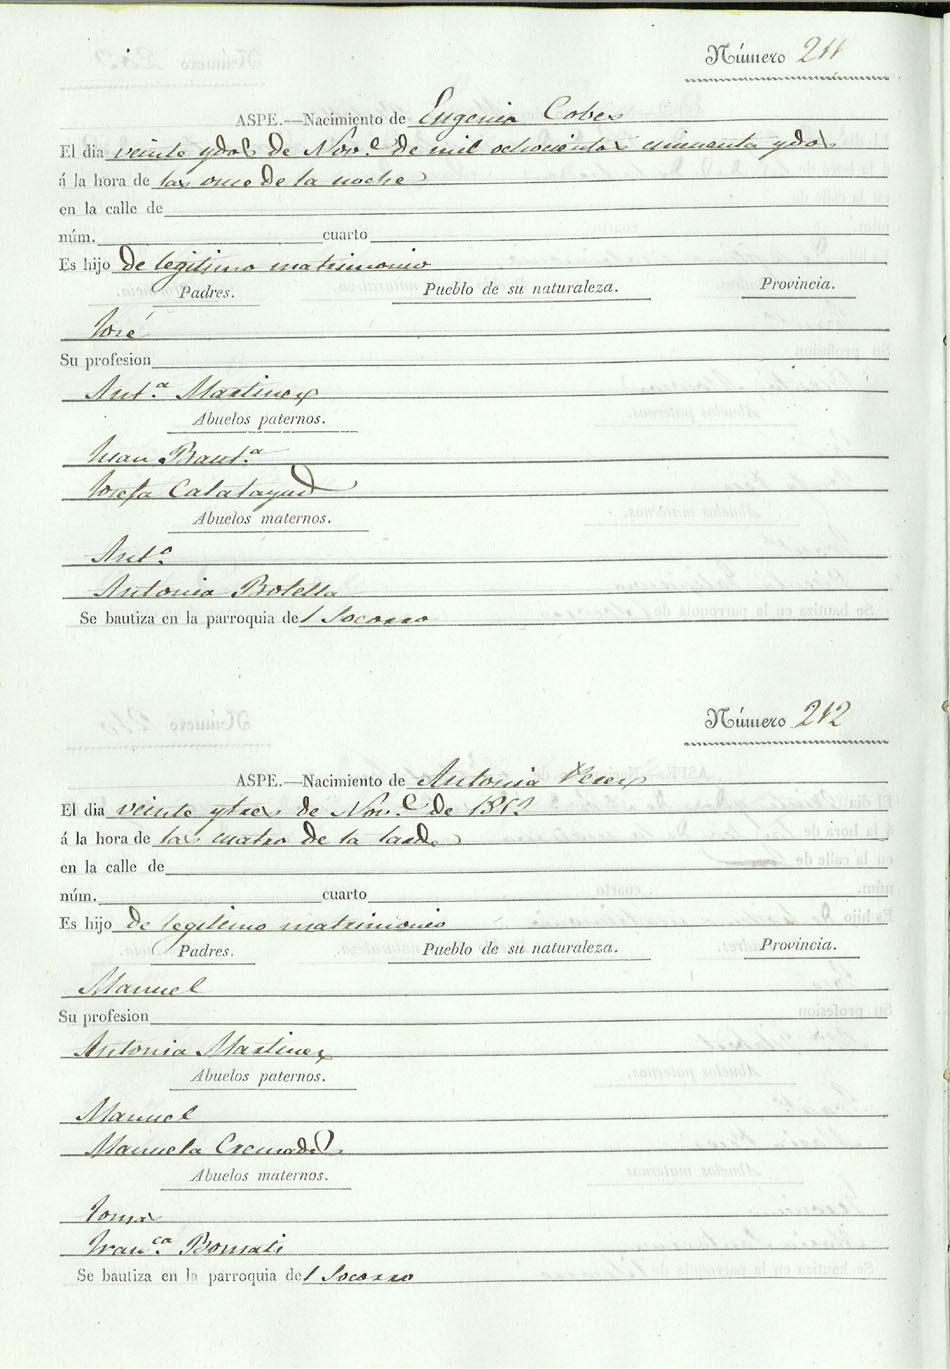 Número 211
ASPE.—Nacimiento de Eugenio Cobes
El dia veinte y dos de Nov.e de mil ochocientos cincuenta y dos
á la hora de las once de la noche
en la calle de
núm. cuarto
Es hijo de legitimo matrimonio
Padres. Pueblo de su naturaleza. Provincia.
José
Su profesion
Ant.a Martinez
Abuelos paternos.
Juan Baut.a
Josefa Calatayud
Abuelos maternos.
Ant.o
Antonia Botella
Se bautiza en la parroquia del Socorro
Número 212
ASPE.—Nacimiento de Antonia Perez
El dia veinte y tres de Nov.e de 1852
á la hora de las cuatro de la tarde
en la calle de
núm. cuarto
Es hijo de legitimo matrimonio
Padres. Pueblo de su naturaleza. Provincia.
Manuel
Su profesion
Antonia Martinez
Abuelos paternos.
Manuel
Manuela Cremades
Abuelos maternos.
Tomas
Fran.ca Bonmati
Se bautiza en la parroquia del Socorro